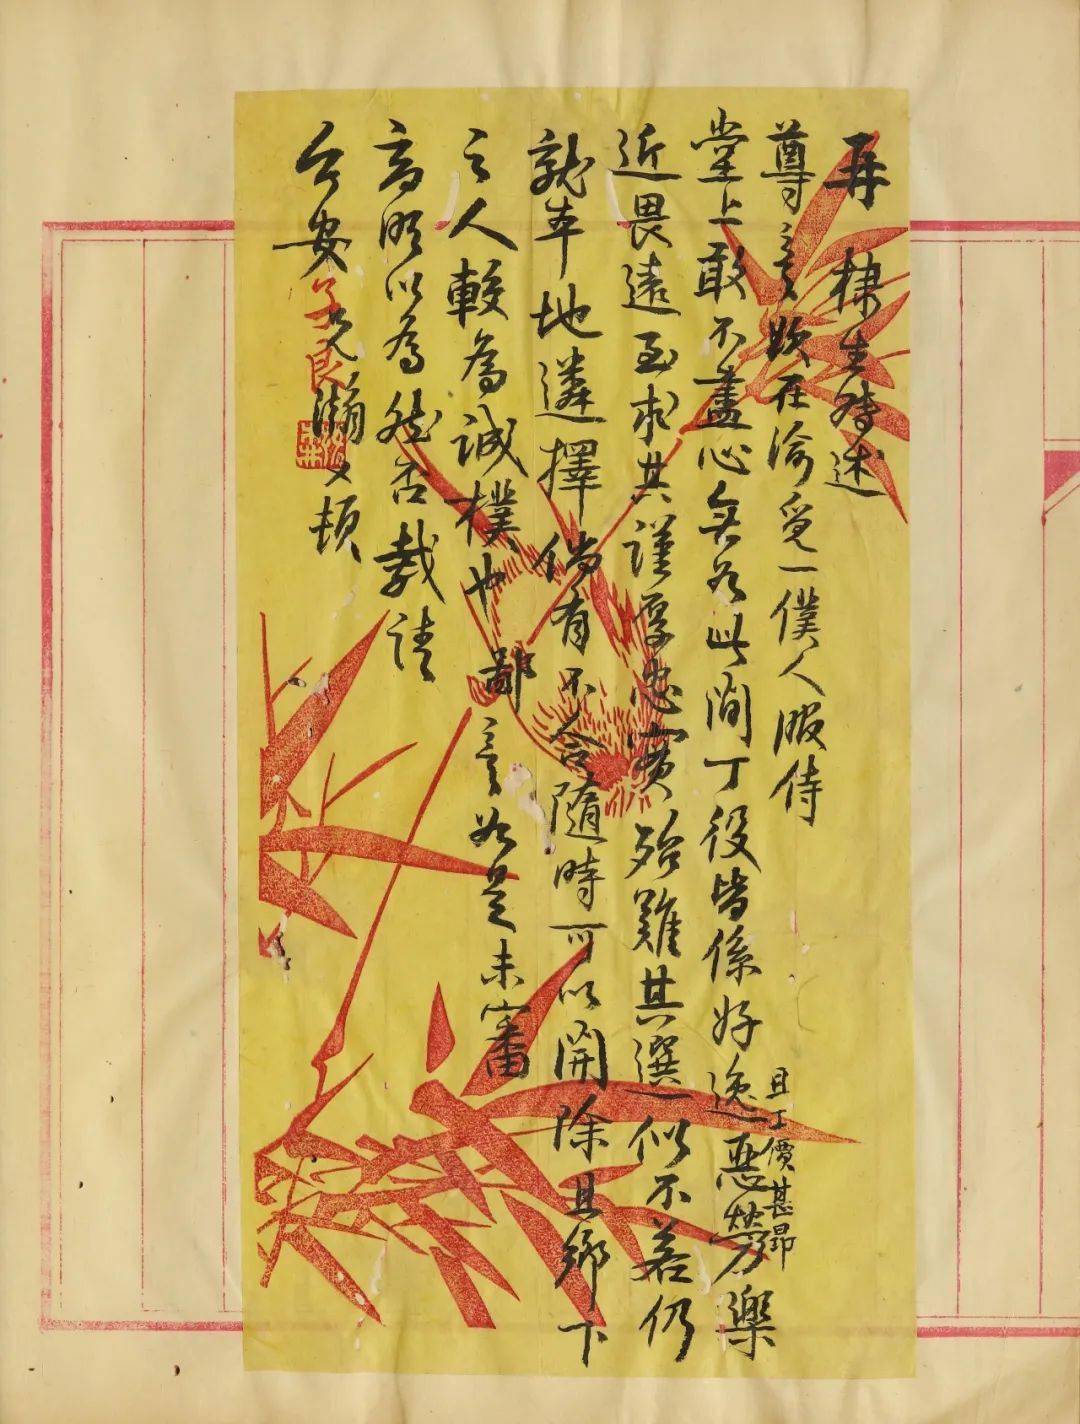 再 棣生轉述
尊意欲在渝覓一僕人服侍
堂上敢不盡心無如此間丁役皆係好逸惡勞樂
且工價甚昂
近畏遠至求其謹厚忠實殆難其選似不若仍
就本地遴擇倘有不合隨時可以開除且鄉下
之人較為誠樸也鄙意如是未審
高明以為然否載請
台安 兄瀚又頓
子良